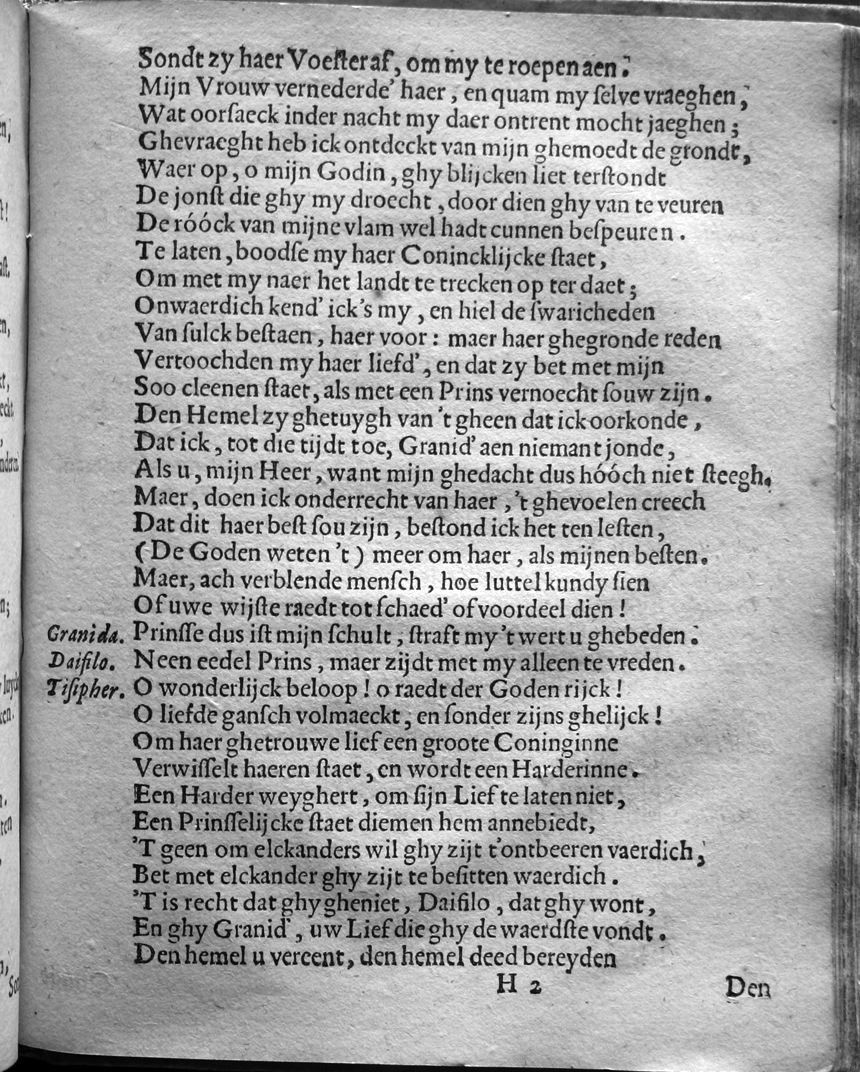 Sondt zy haer Voesteraf, om my te roepen aen.
Mijn Vrouw vernederde' haer, en quam my ſelve vraeghen,
Wat oorſaeck inder nacht my daer ontrent mocht jaeghen;
Ghevraeght heb ick ontdeckt van mijn ghemoedt de grondt,
Waer op, o mijn Godin, ghy blijcken liet terſtondt
De jonſt die ghy my droecht, door dien ghy van te veuren
De róóck van mijne vlam wel hadt cunnen beſpeuren.
Te laten, boodſe my haer Conincklijcke ſtaet,
Om met my naer het landt te trecken op ter daet;
Onwaerdich kend' ick's my, en hiel de ſwaricheden
Van ſulck beſtaen, haer voor: maer haer ghegronde reden
Vertoochden my haer liefd', en dat zy bet met mijn
Soo cleenen ſtaet, als met een Prins vernoecht ſouw zijn.
Den Hemel zy ghetuygh van 't gheen dat ick oorkonde,
Dat ick, tot die tijdt toe, Granid' aen niemant jonde,
Als u, mijn Heer, want mijn ghedacht dus hóóch niet ſteegh.
Maer, doen ick onderrecht van haer, 't ghevoelen creech
Dat dit haer beſt ſou zijn, beſtond ick het ten leſten,
(De Goden weten 't) meer om haer, als mijnen beſten.
Maer, ach verblende menſch, hoe luttel kundy ſien
Of uwe wijſte raedt tot ſchaed' of voordeel dien!
Granida. Prinſſe dus iſt mijn ſchult, ſtraft my 't wert u ghebeden.
Daifilo. Neen eedel Prins, maer zijdt met my alleen te vreden.
Tiſipher. O wonderlijck beloop! o raedt der Goden rijck!
O liefde ganſch volmaeckt, en ſonder zijns ghelijck!
Om haer ghetrouwe lief een groote Coninginne
Verwiſſelt haeren ſtaet, en wordt een Harderinne.
Een Harder weyghert, om ſijn Lief te laten niet,
Een Prinſſelijcke ſtaet diemen hem annebiedt,
'T geen om elckanders wil ghy zijt t'ontbeeren vaerdich,
Bet met elckander ghy zijt te beſitten waerdich.
'T is recht dat ghy gheniet, Daifilo, dat ghy wont,
En ghy Granid', uw Lief die ghy de waerdſte vondt.
Den hemel u vereent, den hemel deed bereyden
H 2 Den